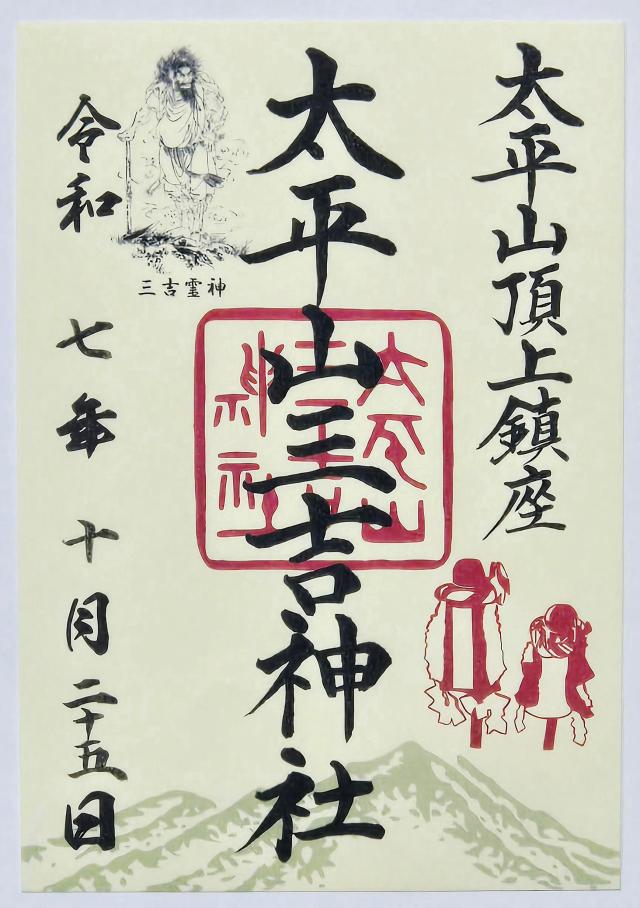 太平山頂上鎮座
太平山三吉神社
三吉霊神
令和七年十月二十五日